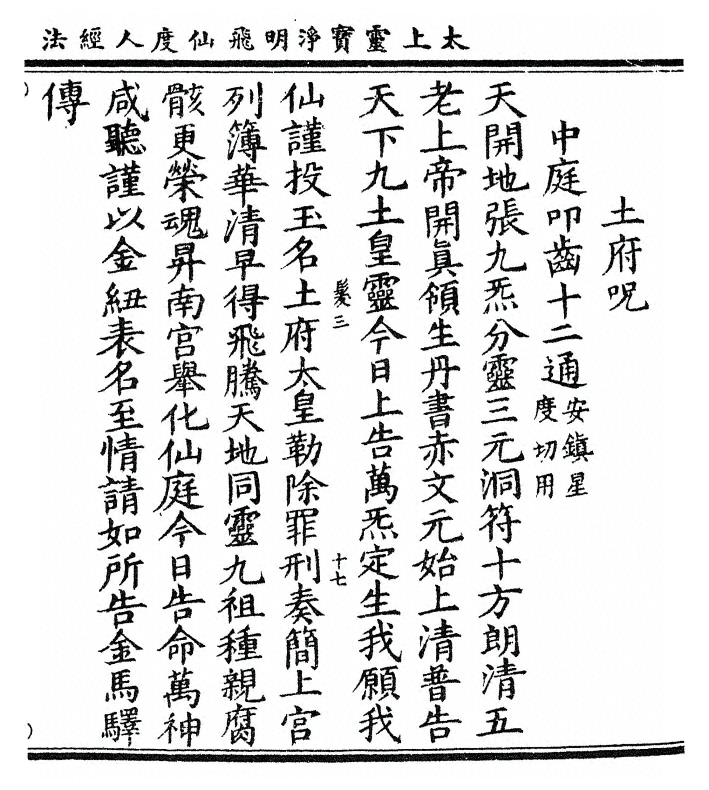 太上靈寶淨明飛仙度人經法
土府呪
中庭叩齒十二通安鎮星度切用
天開地張九炁分靈三元洞符十方朗清五
老上帝開眞領生丹書赤文元始上清普告
天下九土皇靈今日上告萬炁定生我願我
髮三 十七
仙謹投玉名土府太皇勒除罪刑奏簡上宮
列簿華清早得飛騰天地同靈九祖種親腐
骸更榮魂昇南宮舉化仙庭今日告命萬神
咸聽謹以金紐表名至情請如所告金馬驛
傳